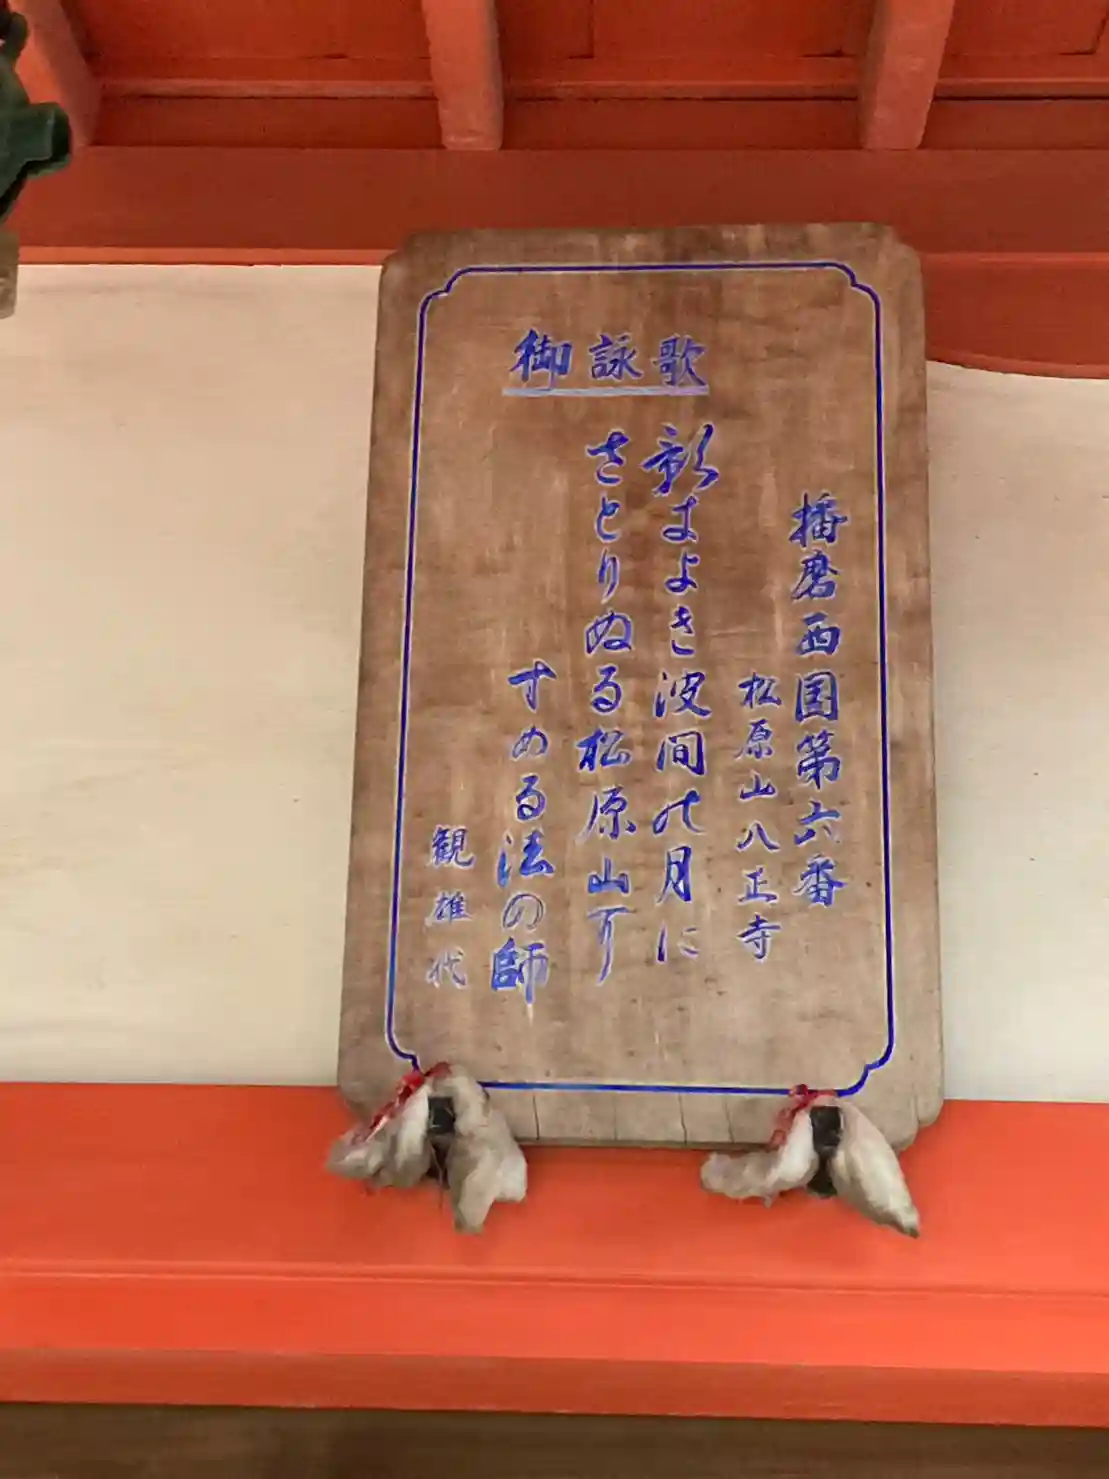 御詠歌
播磨西国第六番
松原山八正寺
影きよき波間の月に
さとりぬる松原山に
すめる法の師
観雄代